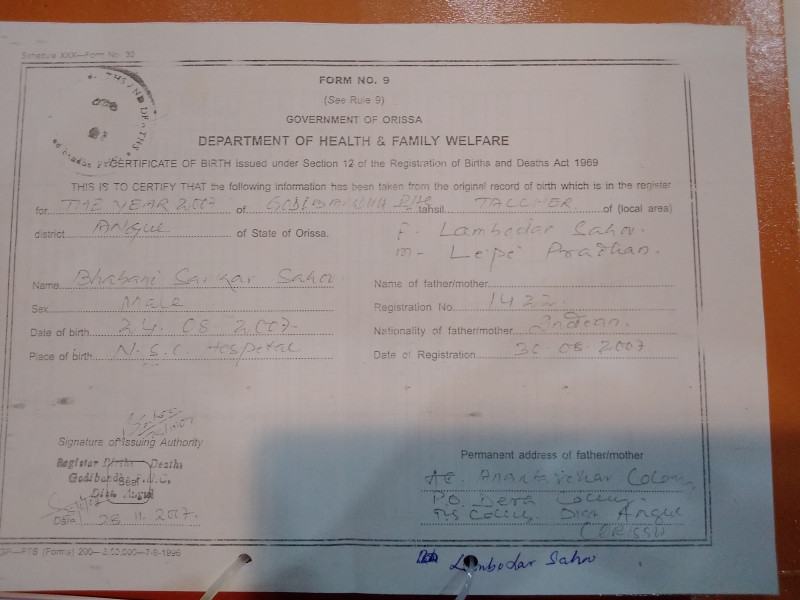 Schedule XXX—Form No. 30
FORM NO. 9
(See Rule 9)
GOVERNMENT OF ORISSA
DEPARTMENT OF HEALTH & FAMILY WELFARE
CERTIFICATE OF BIRTH issued under Section 12 of the Registration of Births and Deaths Act 1969
THIS IS TO CERTIFY THAT the following information has been taken from the original record of birth which is in the register
for THE YEAR 2007 of tahsil TALCHER of (local area)
district of State of Orissa.
F- Lambodar Sahoo
m- Pradhan.
Name Bhabani Sahoo
Name of father/mother
Sex Male
Registration No. 1422
Date of birth 24. 08. 2007.
Nationality of father/mother Indian.
Place of birth Hospetal
Date of Registration 30-08-2007
Signature of Issuing Authority
Permanent address of father/mother
Registar Births Deaths
Seal
Dist Angul
At. Colony
P.O. Dera Colliery
P.S Dist
Date 28. 11. 2007.
Lambodar Sahoo